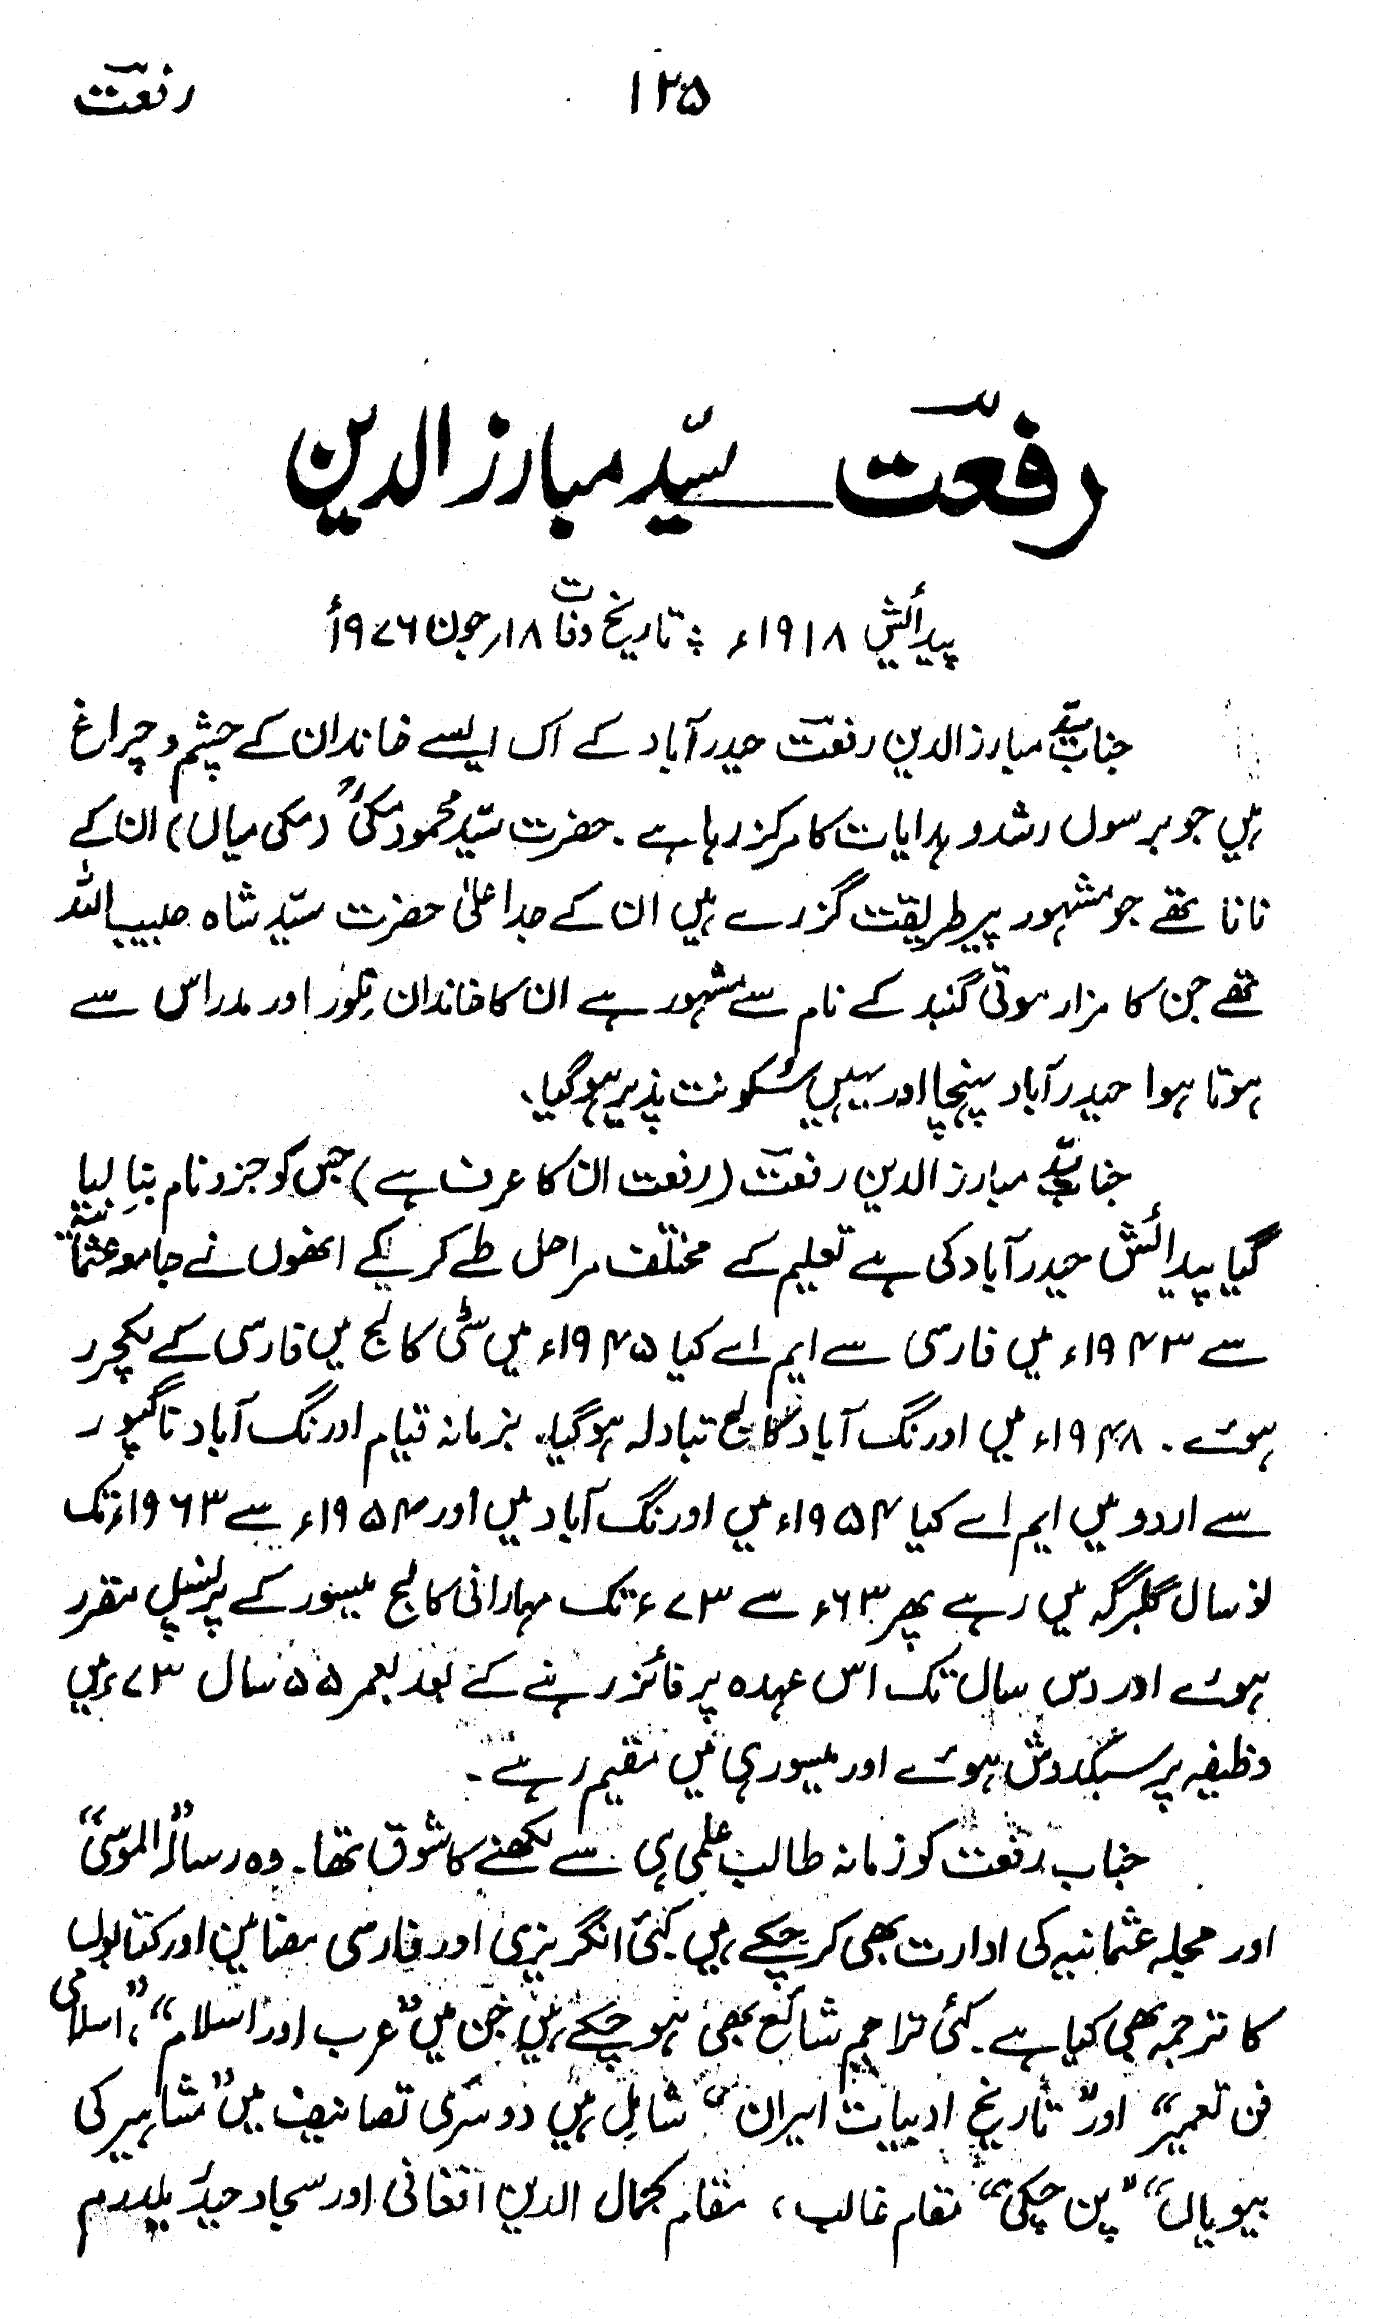 رفعت ۱۲۵
رفعت سیّد مبارز الدین
پیدائش ۱۹۱۸ء ؞ تاریخ وفات ۱۸؍جون ۱۹۷۶ء
جناب سیّد مبارز الدین رفعت حیدرآباد کے اک ایسے خاندان کے چشم و چراغ
ہیں جو برسوں رشد و ہدایات کا مرکز رہا ہے ۔ حضرت سیّد محمود مکیؒ (مکی میاں) ان کے
نانا تھے جو مشہور پیر طریقت گزرے ہیں ان کے جد اعلیٰ حضرت سیّد شاہ حبیب اللہ
تھے جن کا مزار موتی گنبد کے نام سے مشہور ہے ان کا خاندان ویلور اور مدراس سے
ہوتا ہوا حیدرآباد پہنچا اور یہیں سکونت پذیر ہوگیا۔
جناب سیّد مبارز الدین رفعت (رفعت ان کا عرف ہے) جس کو جزو نام بنا لیا
گیا پیدائش حیدرآباد کی ہے تعلیم کے مختلف مراحل طے کر کے انھوں نے جامعہ عثمانیہ
سے ۱۹۴۳ء میں فارسی سے ایم اے کیا ۱۹۴۵ء میں سٹی کالج میں فارسی کے لکچرر
ہوئے ۔ ۱۹۴۸ء میں اورنگ آباد کالج تبادلہ ہوگیا۔ بزمانہ قیام اورنگ آباد ناگپور
سے اردو میں ایم اے کیا ۱۹۵۴ء میں اورنگ آباد میں اور ۱۹۵۴ء سے ۱۹۶۳ء تک
نو سال گلبرگہ میں رہے پھر ۶۳ء سے ۷۳ء تک مہارانی کالج میسور کے پرنسپل مقرر
ہوئے اور دس سال تک اس عہدہ پر فائز رہنے کے بعد بعمر ۵۵ سال ۷۳ء میں
وظیفہ پر سبکدوش ہوئے اور میسور ہی میں مقیم رہے ۔
جناب رفعت کو زمانہ طالب علمی ہی سے لکھنے کا شوق تھا۔ وہ رسالہ "الموسیٰ"
اور مجلہ عثمانیہ کی ادارت بھی کر چکے ہیں کئی انگریزی اور فارسی مضامین اور کتابوں
کا ترجمہ بھی کیا ہے ۔ کئی تراجم شائع بھی ہو چکے ہیں جن میں "عرب اور اسلام"، "اسلامی
فن تعمیر" اور "تاریخ ادبیات ایران" شامل ہیں دوسری تصانیف میں "مشاہیر کی
بیویاں" "پن چکی" مقام غالب، مقام جمال الدین افغانی اور سجاد حیدر یلدرم